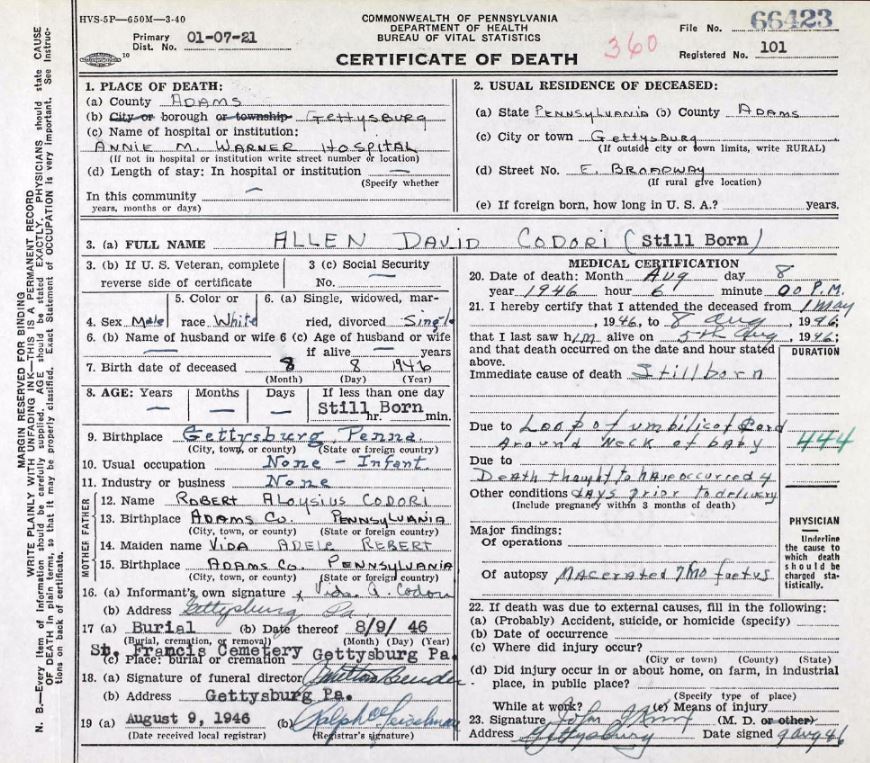 HVS-5P—650M—3-40
COMMONWEALTH OF PENNSYLVANIA
DEPARTMENT OF HEALTH
BUREAU OF VITAL STATISTICS
CERTIFICATE OF DEATH
Primary Dist. No. 01-07-21
360
File No. 66423
Registered No. 101
MARGIN RESERVED FOR BINDING
WRITE PLAINLY WITH UNFADING INK—THIS IS A PERMANENT RECORD
N. B.—Every item of information should be carefully supplied. AGE should be stated EXACTLY. PHYSICIANS should state CAUSE
OF DEATH in plain terms, so that it may be properly classified. Exact Statement of OCCUPATION is very important. See Instruc-
tions on back of certificate.
1. PLACE OF DEATH:
(a) County ADAMS
(b) City or borough or township Gettysburg
(c) Name of hospital or institution:
ANNIE M. WARNER HOSPITAL
(If not in hospital or institution write street number or location)
(d) Length of stay: In hospital or institution —
(Specify whether
In this community —
years, months or days)
2. USUAL RESIDENCE OF DECEASED:
(a) State PENNSYLVANIA (b) County ADAMS
(c) City or town Gettysburg
(If outside city or town limits, write RURAL)
(d) Street No. E. BROADWAY
(If rural give location)
(e) If foreign born, how long in U. S. A.? years.
3. (a) FULL NAME ALLEN DAVID CODORI (Still Born)
3. (b) If U. S. Veteran, complete
reverse side of certificate
3 (c) Social Security
No. —
4. Sex Male
5. Color or
race White
6. (a) Single, widowed, mar-
ried, divorced Single
6. (b) Name of husband or wife —
6 (c) Age of husband or wife
if alive — years
7. Birth date of deceased 8 8 1946
(Month) (Day) (Year)
8. AGE: Years — Months — Days — If less than one day
Still Born hr. min.
9. Birthplace Gettysburg Penna.
(City, town, or county) (State or foreign country)
10. Usual occupation None - Infant
11. Industry or business None
FATHER
12. Name ROBERT ALOYSIUS CODORI
13. Birthplace ADAMS CO. PENNSYLVANIA
MOTHER
14. Maiden name VIDA ADELE REBERT
15. Birthplace ADAMS CO. PENNSYLVANIA
(City, town, or county) (State or foreign country)
16. (a) Informant's own signature x Vida A. Codori
(b) Address Gettysburg Pa.
17 (a) Burial (b) Date thereof 8/9/ 46
(Burial, cremation, or removal) (Month) (Day) (Year)
St. Francis Cemetery Gettysburg Pa.
(c) Place: burial or cremation
18. (a) Signature of funeral director Bender
(b) Address Gettysburg Pa.
19 (a) August 9, 1946 (b)
(Date received local registrar) (Registrar's signature)
MEDICAL CERTIFICATION
20. Date of death: Month Aug day 8
year 1946 hour 6 minute 00 P.M.
21. I hereby certify that I attended the deceased from 1 May
, 1946, to 8 aug , 1946;
that I last saw him alive on 5th Aug , 1946;
and that death occurred on the date and hour stated
above.
DURATION
Immediate cause of death Stillborn
Due to Loop of umbilical Cord
Around neck of baby
444
Due to
Death thought to have occurred 4
Other conditions days prior to delivery
(Include pregnancy within 3 months of death)
Major findings:
Of operations
Of autopsy Macerated 7 mo foetus
PHYSICIAN
Underline
the cause to
which death
should be
charged sta-
tistically.
22. If death was due to external causes, fill in the following:
(a) (Probably) Accident, suicide, or homicide (specify)
(b) Date of occurrence
(c) Where did injury occur?
(City or town) (County) (State)
(d) Did injury occur in or about home, on farm, in industrial
place, in public place?
(Specify type of place)
While at work? (e) Means of injury
23. Signature (M. D. or other)
Address Gettysburg Date signed 9 aug 46